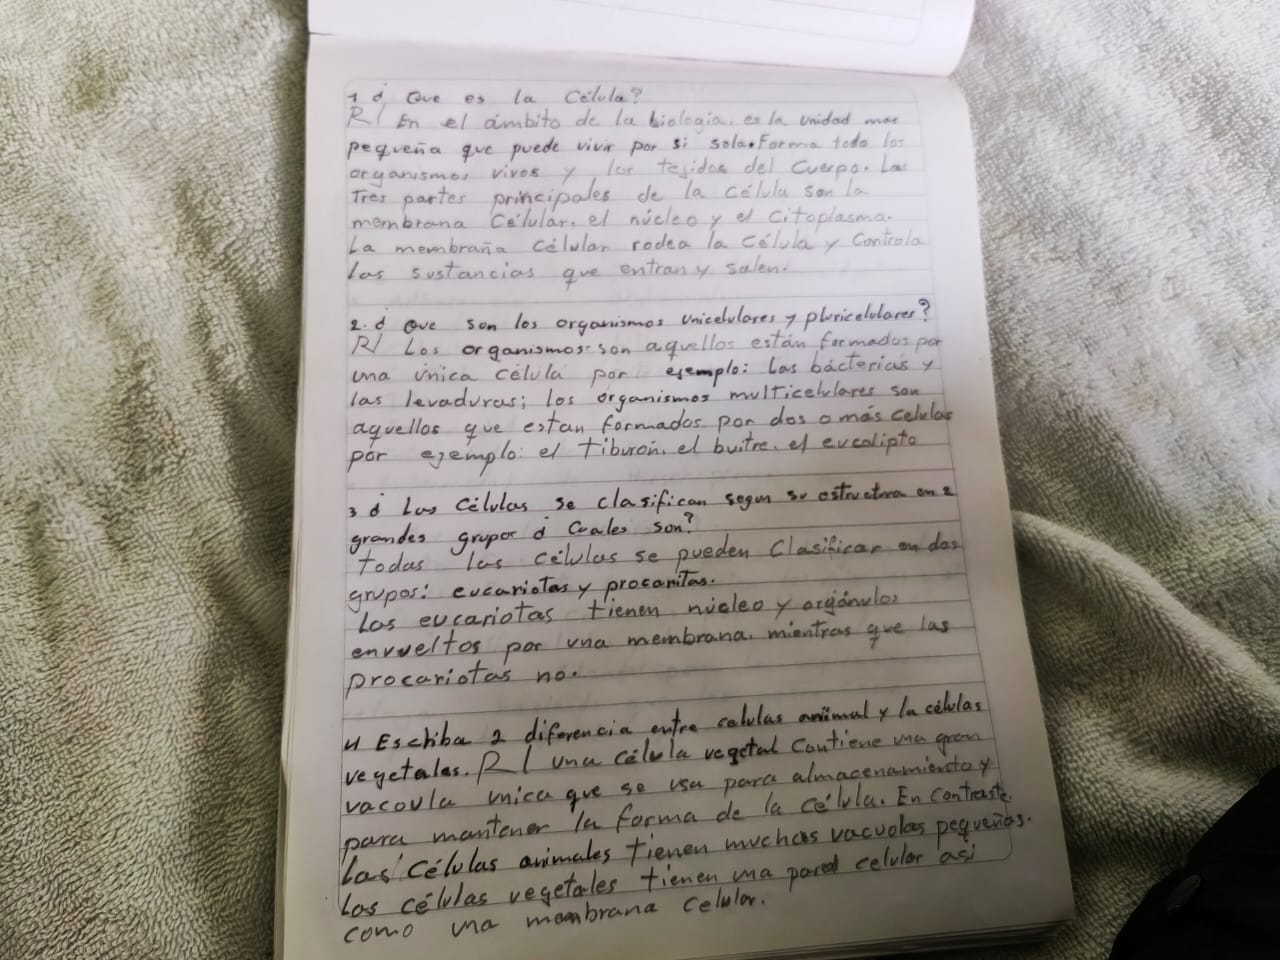 1 ¿ Que es la Célula?
R/ En el ámbito de la biologia, es la unidad mas
pequeña que puede vivir por si sola. Forma todo los
organismos vivos y los tejidos del Cuerpo. Las
Tres partes principales de la Célula son la
membrana Célular, el núcleo y el Citoplasma.
La membraña Célular rodea la Célula y Controla
las sustancias que entran y salen.
2. ¿ Que son los organismos Unicelulares y pluricelulares?
R/ Los organismos son aquellos están formados por
una única célula por ejemplo: Las bácterias y
las levaduras; los organismos multicelulares son
aquellos que estan formados por dos o más celulas
por ejemplo: el Tiburón, el buitre, el eucalipto
3 ¿ Las Células se clasifican segun su estructura en 2
grandes grupos ¿ Cuales son?
Todas las células se pueden Clasificar en dos
grupos: eucariotas y procaritas.
Las eucariotas tienen núcleo y orgánulos
envueltos por una membrana, mientras que las
procariotas no.
4 Escriba 2 diferencia entre celulas animal y la células
vegetales. R/ Una Célula vegetal Contiene una gran
vacoula unica que se usa para almacenamiento y
para mantener la forma de la célula. En Contraste,
Las Células animales tienen muchas vacuolas pequeñas.
Las células vegetales tienen una pared celular asi
como una membrana Celular.